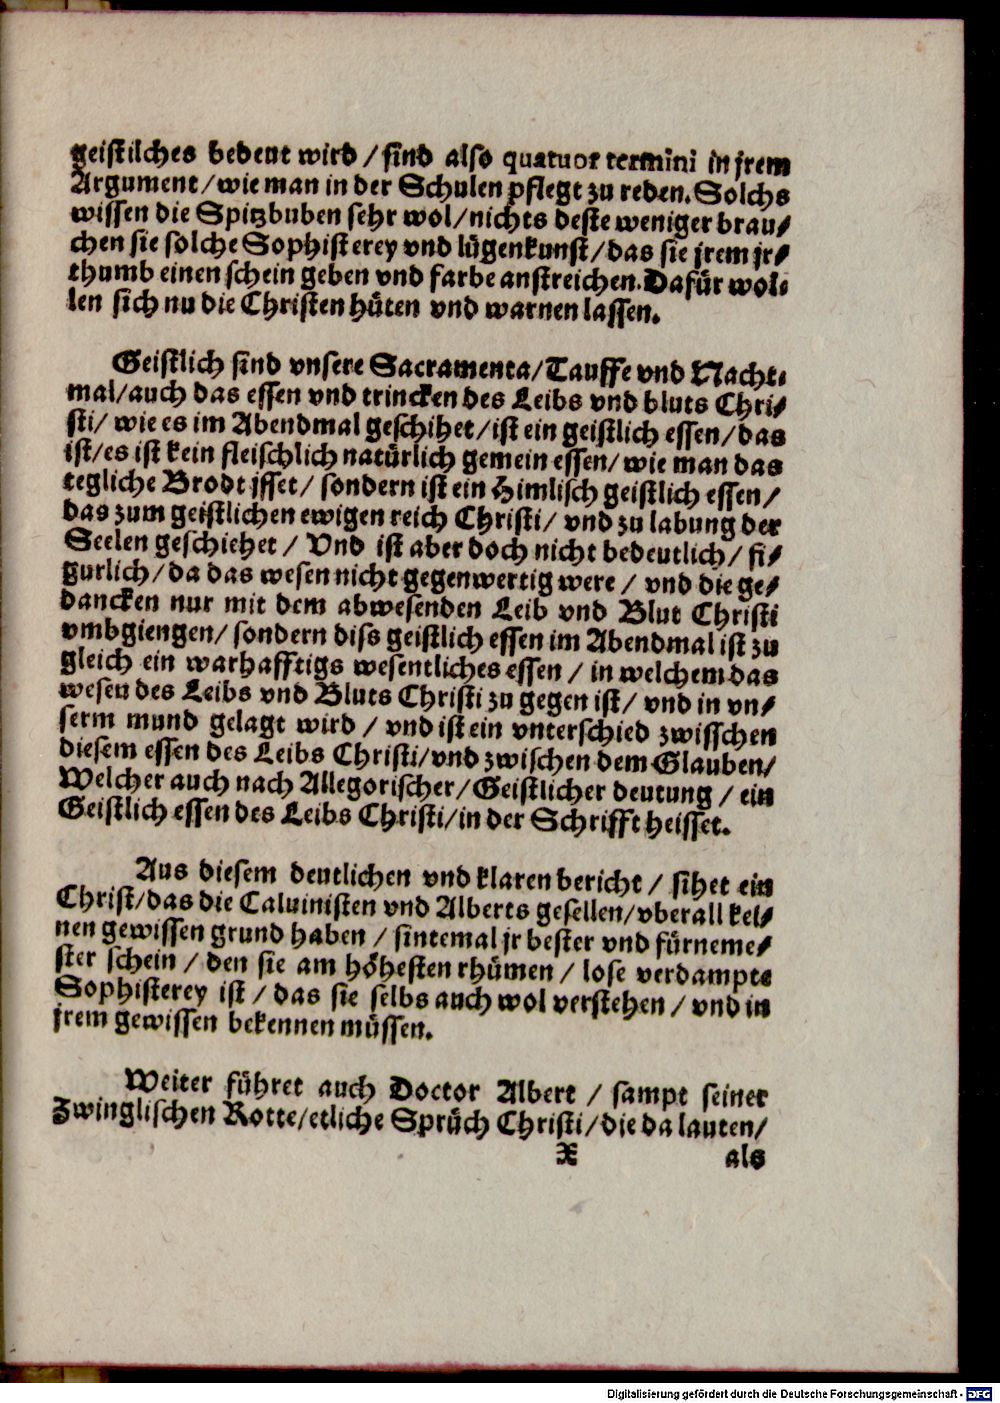 geistilches bedeut wird / sind also quatuor termini in jrem
Argument / wie man in der Schulen pflegt zu reden. Solchs
wissen die Spitzbuben sehr wol / nichts deste weniger brau⸗
chen sie solche Sophisterey vnd lügenkunst / das sie jrem jr⸗
thumb einen schein geben vnd farbe anstreichen. Dafür wol⸗
len sich nu die Christen hüten vnd warnen lassen.
Geistlich sind vnsere Sacramenta / Tauffe vnd Nacht⸗
mal / auch das essen vnd trincken des Leibs vnd bluts Chri⸗
sti / wie es im Abendmal geschihet / ist ein geistlich essen / das
ist / es ist kein fleischlich natürlich gemein essen / wie man das
tegliche Brodt jsset / sondern ist ein Himlisch geistlich essen /
das zum geistlichen ewigen reich Christi / vnd zu labung der
Seelen geschiehet / Vnd ist aber doch nicht bedeutlich / fi⸗
gurlich / da das wesen nicht gegenwertig were / vnd die ge⸗
dancken nur mit dem abwesenden Leib vnd Blut Christi
vmbgiengen / sondern diss geistlich essen im Abendmal ist zu
gleich ein warhafftigs wesentliches essen / in welchem das
wesen des Leibs vnd Bluts Christi zu gegen ist / vnd in vn⸗
serm mund gelagt wird / vnd ist ein vnterschied zwisschen
diesem essen des Leibs Christi / vnd zwischen dem Glauben /
Welcher auch nach Allegorischer / Geistlicher deutung / ein
Geistlich essen des Leibs Christi / in der Schrifft heisset.
Aus diesem deutlichen vnd klaren bericht / sihet ein
Christ / das die Caluinisten vnd Alberts gesellen / vberall kei⸗
nen gewissen grund haben / sintemal jr bester vnd fürneme⸗
ster schein / den sie am höhesten rhümen / lose verdampte
Sophisterey ist / das sie selbs auch wol verstehen / vnd in
jrem gewissen bekennen müssen.
Weiter führet auch Doctor Albert / sampt seiner
Zwinglischen Rotte / etliche Sprüch Christi / die da lauten /
X als
Digitalisierung gefördert durch die Deutsche Forschungsgemeinschaft - DFG